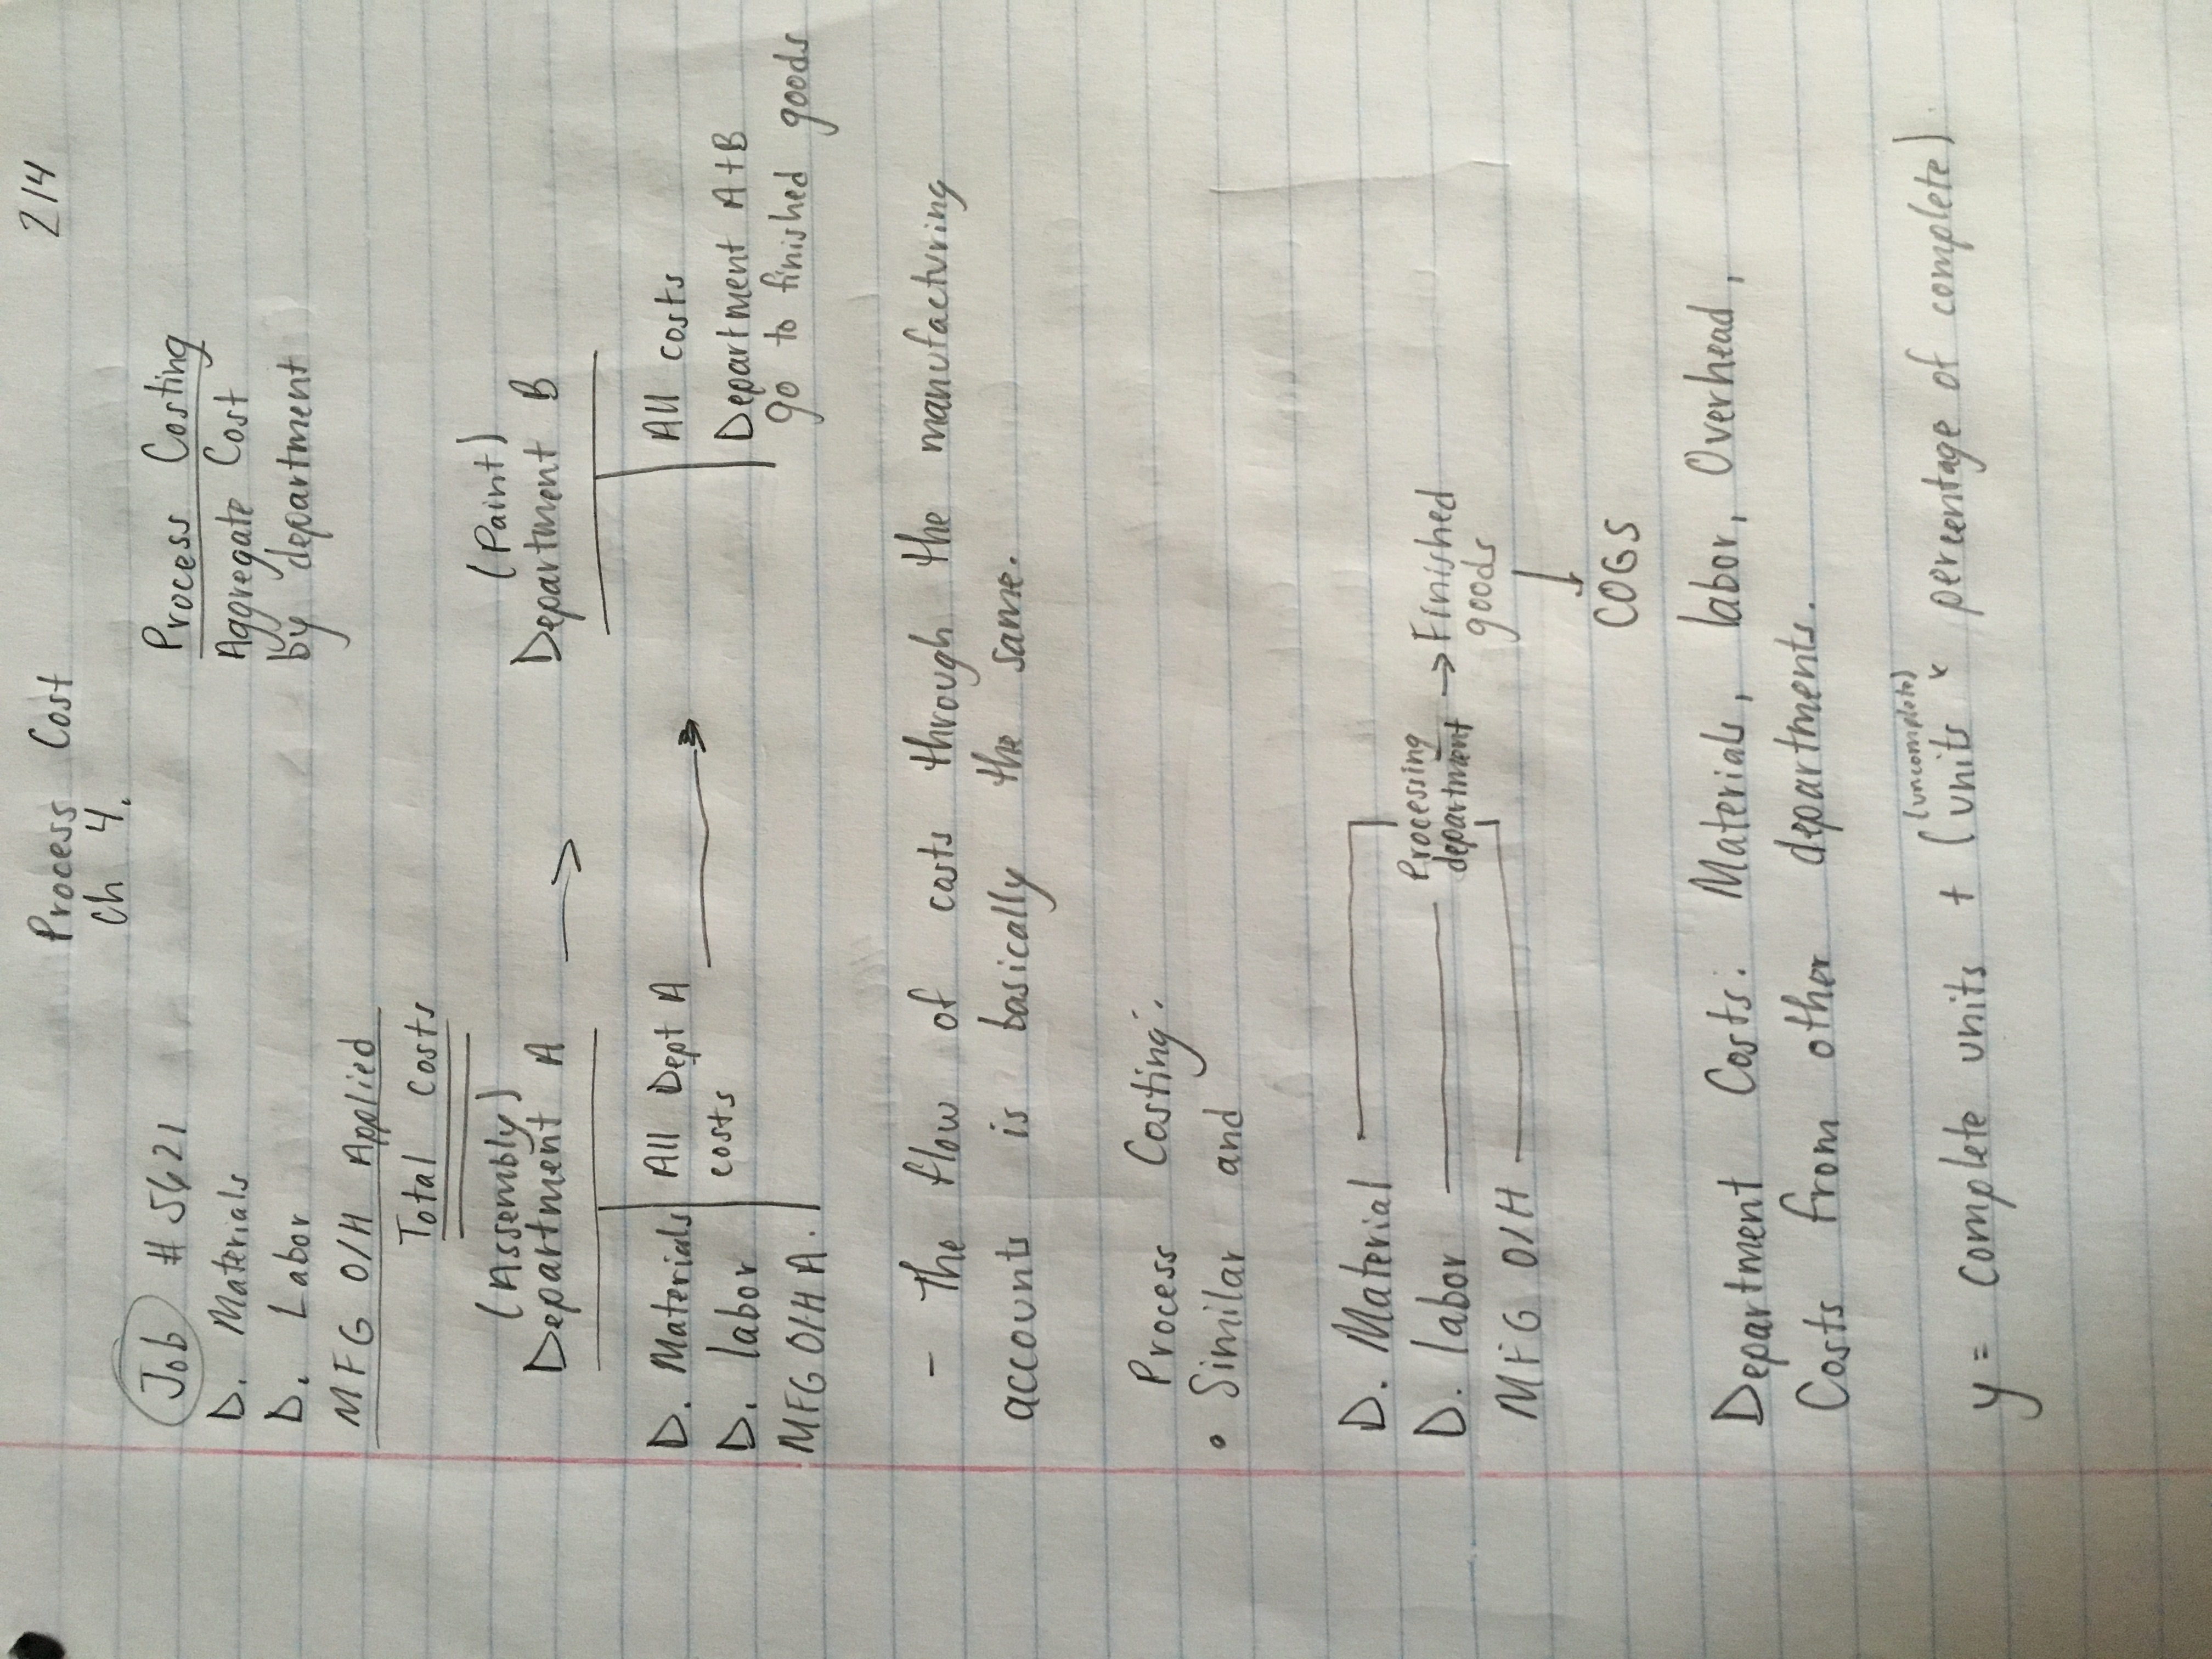 Process Cost 2/4
Ch 4.
Job # 5621 Process Costing
D. Materials Aggregate Cost
D. Labor by department
MFG O/H Applied
Total Costs
(Assembly) (Paint)
Department A → Department B
D. Materials All Dept A → All costs
D. labor costs Department A+B
MFG O/H A. go to finished goods
- The flow of costs through the manufacturing
accounts is basically the same.
Process Costing:
• Similar and
D. Material
D. labor Processing department → Finished goods
MFG O/H
↓
COGS
Department Costs: Materials, labor, Overhead,
Costs from other departments.
(uncomplete)
y = Complete units + (units x percentage of complete).